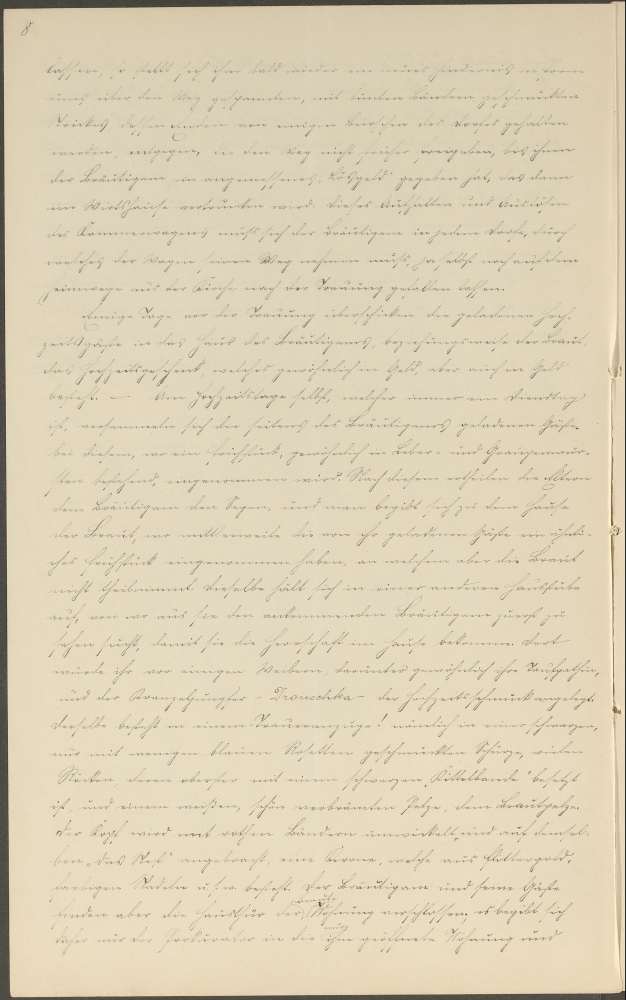 8
lassen, so stellt sich ihm bald wieder ein neues Hindernis in Form
eines über den Weg gespannten, mit bunten Bändern geschmückten
Strickes, dessen Enden von einigen Burschen des Dorfes gehalten
werden, entgegen, die den Weg nicht früher freigeben, bis ihnen
der Bräutigam ein angemessenes Lösegeld gegeben hat, das dann
im Wirtshause vertrunken wird. Dieses Aufhalten und Auslösen
des Kammerwagens muß sich der Bräutigam in jedem Dorfe, durch
welches der Wagen seinen Weg nehmen muß, ja selbst noch auf dem
Heimwege aus der Kirche nach der Trauung gefallen lassen.
Einige Tage vor der Trauung überschicken die geladenen Hoch-
zeitsgäste in das Haus des Bräutigams, beziehungsweise der Braut,
das Hochzeitsgeschenk, welches gewöhnlich in Geld, aber auch in Gold
besteht. — Am Hochzeitstage selbst, welcher immer ein Dienstag
ist, versammeln sich die seitens des Bräutigams geladenen Gäste
bei diesem, wo ein Frühstück, gewöhnlich in Leber- und Graupenwür-
sten bestehend, eingenommen wird. Nach diesem ertheilen die Eltern
dem Bräutigam den Segen, und man begibt sich zu dem Hause
der Braut, wo mittlerweile die von ihr geladenen Gäste ein ähnli-
ches Frühstück eingenommen haben, an welchem aber die Braut
nicht theilnimmt. Dieselbe hält sich in einer anderen Hausstube
auf, von wo aus sie den ankommenden Bräutigam zuerst zu
sehen sucht, damit sie die Herrschaft im Hause bekomme. Dort
wurde ihr von einigen Weibern, darunter gewöhnlich ihre Taufpathin,
und der Kranzeljungfer – Drouschka – der Hochzeitsschmuck angelegt.
Derselbe besteht in einem Traueranzuge! nämlich in einer schwarzen,
nur mit wenigen blauen Rosetten geschmückten Schürze, vielen
Röcken, deren oberster mit einem schwarzen „Kittelbande" besetzt
ist, und einem weißen, schön verbrämten Pelze, dem Brautpelze.
Der Kopf wird mit rothen Bändern umwickelt und auf demsel-
ben „das Nest" angebracht, eine Krone, welche aus Flittergold,
farbigen Nadeln u.s.w. besteht. Der Bräutigam und seine Gäste
finden aber die Hausthür der Wohnung verschlossen, es begibt sich
daher nur der Prokurator in die ihm geöffnete Wohnung und